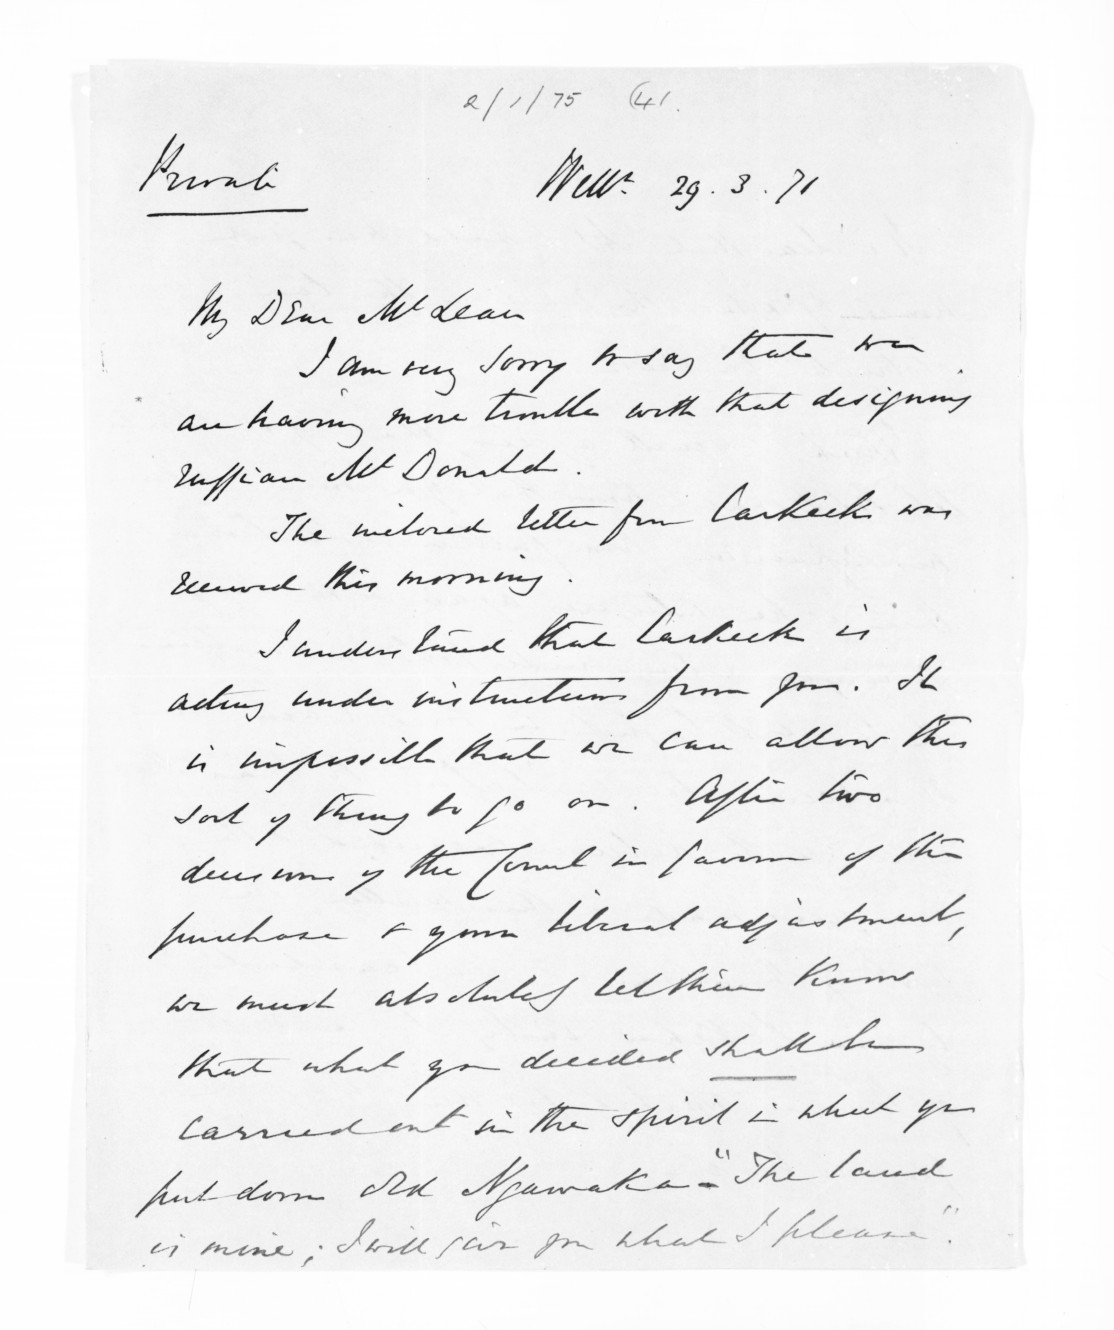 2/1/75 (41.
Private
Welln. 29.3.71
My Dear McLean
I am very sorry to say that we
are having more trouble with that designing
ruffian McDonald.
The inclosed letter from Carkeek was
received this morning.
I understand that Carkeek is
acting under instructions from you. It
is impossible that we can allow this
sort of thing to go on. After two
decisions of the Court in favour of the
purchase & your liberal adjustment,
we must absolutely let them know
that what you decided shall be
carried out in the spirit in which you
put down old Ngawaka - "The land
is mine; I will give you what I please".